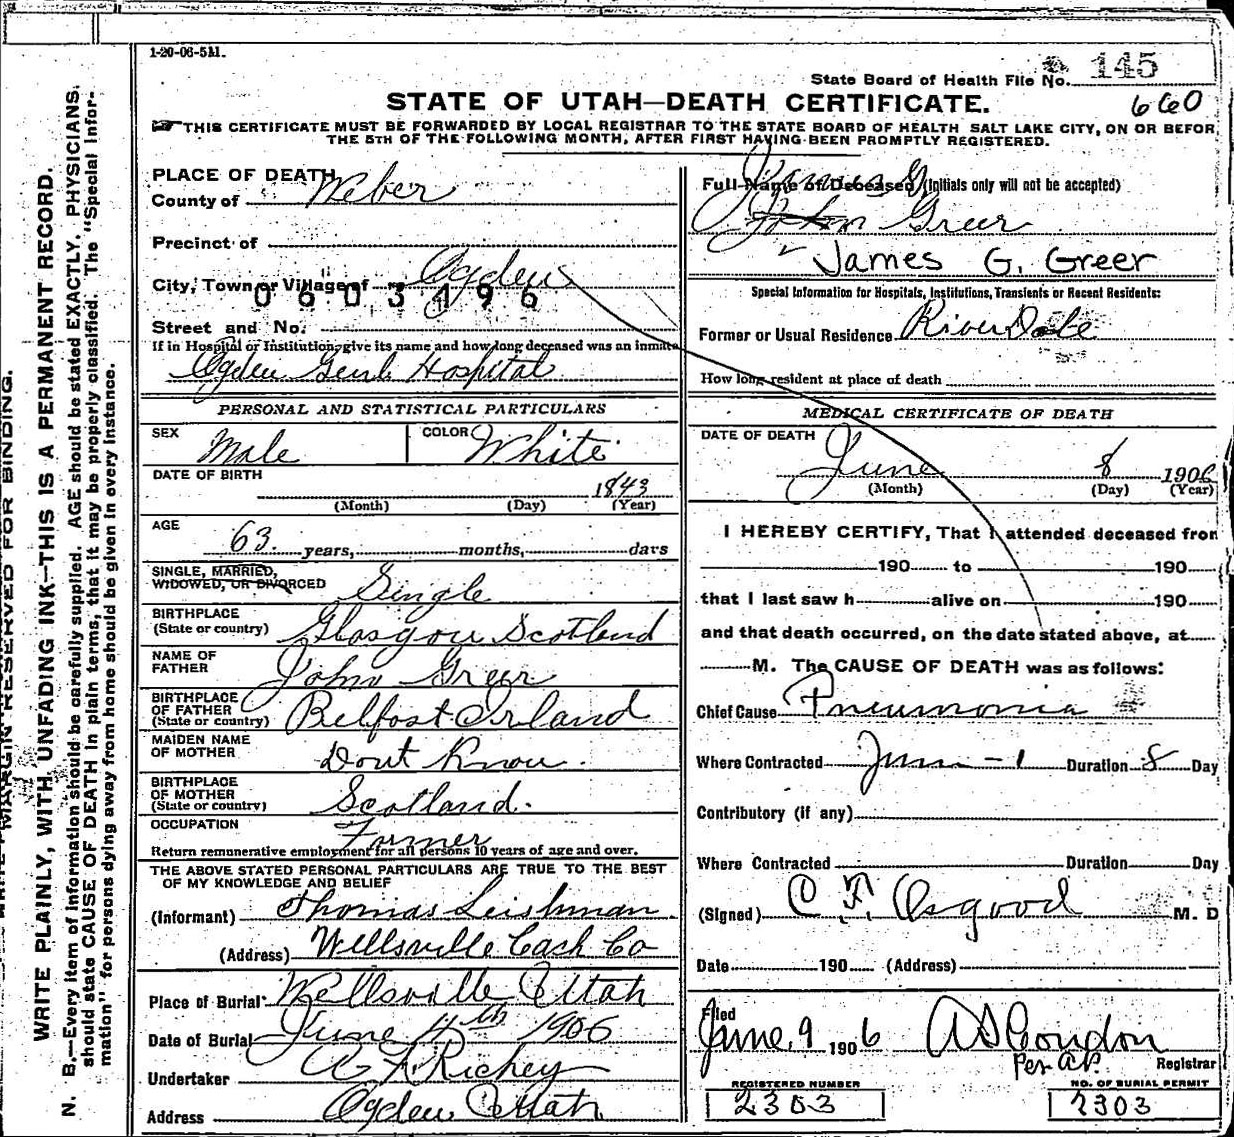 1-20-06-5M.
State Board of Health File No. 145
STATE OF UTAH—DEATH CERTIFICATE.
660
THIS CERTIFICATE MUST BE FORWARDED BY LOCAL REGISTRAR TO THE STATE BOARD OF HEALTH SALT LAKE CITY, ON OR BEFOR
THE 5TH OF THE FOLLOWING MONTH, AFTER FIRST HAVING BEEN PROMPTLY REGISTERED.
PLACE OF DEATH
County of Weber
Precinct of
City, Town or Village of Ogden
0603496
Street and No.
If in Hospital or Institution, give its name and how long deceased was an inmate
Ogden Genl Hospital
PERSONAL AND STATISTICAL PARTICULARS
SEX Male COLOR White
DATE OF BIRTH 1843
(Month) (Day) (Year)
AGE
63 years, months, days
SINGLE, MARRIED,
WIDOWED, OR DIVORCED Single
BIRTHPLACE
(State or country) Glasgow Scotland
NAME OF
FATHER John Greer
BIRTHPLACE
OF FATHER
(State or country) Belfast Irland
MAIDEN NAME
OF MOTHER Dont Know.
BIRTHPLACE
OF MOTHER
(State or country) Scotland.
OCCUPATION Farmer
Return remunerative employment for all persons 10 years of age and over.
THE ABOVE STATED PERSONAL PARTICULARS ARE TRUE TO THE BEST
OF MY KNOWLEDGE AND BELIEF
(Informant) Thomas Leishman
(Address) Wellsville Cach Co
Place of Burial Wellsville Utah
Date of Burial June 11th 1906
Undertaker A Richey
Address Ogden Utah
Full Name of Deceased (Initials only will not be accepted)
James G
John Greer
James G. Greer
Special Information for Hospitals, Institutions, Transients or Recent Residents:
Former or Usual Residence RiverDale
How long resident at place of death
MEDICAL CERTIFICATE OF DEATH
DATE OF DEATH
June 8 1906
(Month) (Day) (Year)
I HEREBY CERTIFY, That I attended deceased fron
190 to 190
that I last saw h alive on 190
and that death occurred, on the date stated above, at
M. The CAUSE OF DEATH was as follows:
Chief Cause Pneumonia
Where Contracted June - 1 Duration 8 Day
Contributory (if any)
Where Contracted Duration Day
(Signed) Osgood M. D
Date 190 (Address)
Filed
June 9 1906 Condon
Per A.P. Registrar
REGISTERED NUMBER NO. OF BURIAL PERMIT
2303 2303
MARGIN RESERVED FOR BINDING.
WRITE PLAINLY, WITH UNFADING INK—THIS IS A PERMANENT RECORD.
N. B.—Every item of information should be carefully supplied. AGE should be stated EXACTLY. PHYSICIANS.
should state CAUSE OF DEATH in plain terms, that it may be properly classified. The "Special Infor-
mation" for persons dying away from home should be given in every instance.